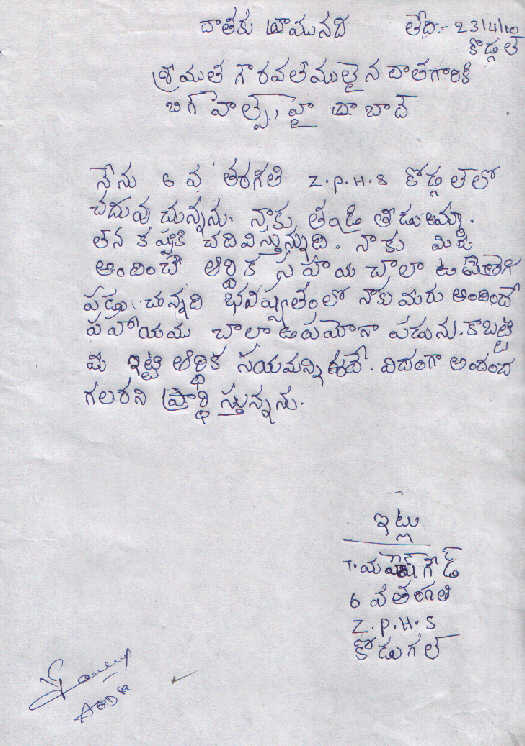 దాతకు యామునది తేది:- 23/4/10
కొడ్గల్
శ్రీమతి గౌరవలేములైన దాతగారికి
బిగ్ హెల్ప్, హై దాబాదే
నేను 6 వ తరగతి Z.P.H.S కోడ్గల్ లో
చదువు చున్నను. నాకు తండ్రి తోడు అమ్మ.
తన కష్టాకి చదివిస్తున్నది. నాకు మీరు
అందించే ఆర్థిక సహాయ చాలా ఉపయోగ
పడు చున్నది భవిష్యత్తంలో నాకు మీరు అందించే
సహాయము చాలా ఉపయోగా పడును. కాబట్టి
మీ ఇట్టి ఆర్థిక సయమన్ని ఇదే. విదంగా అందించ
గలరని ప్రార్థిస్తున్నను.
ఇట్లు
T. మహేష్ గౌడ్
6 వ తరగతి
Z.P.H.S
కోడుగల్